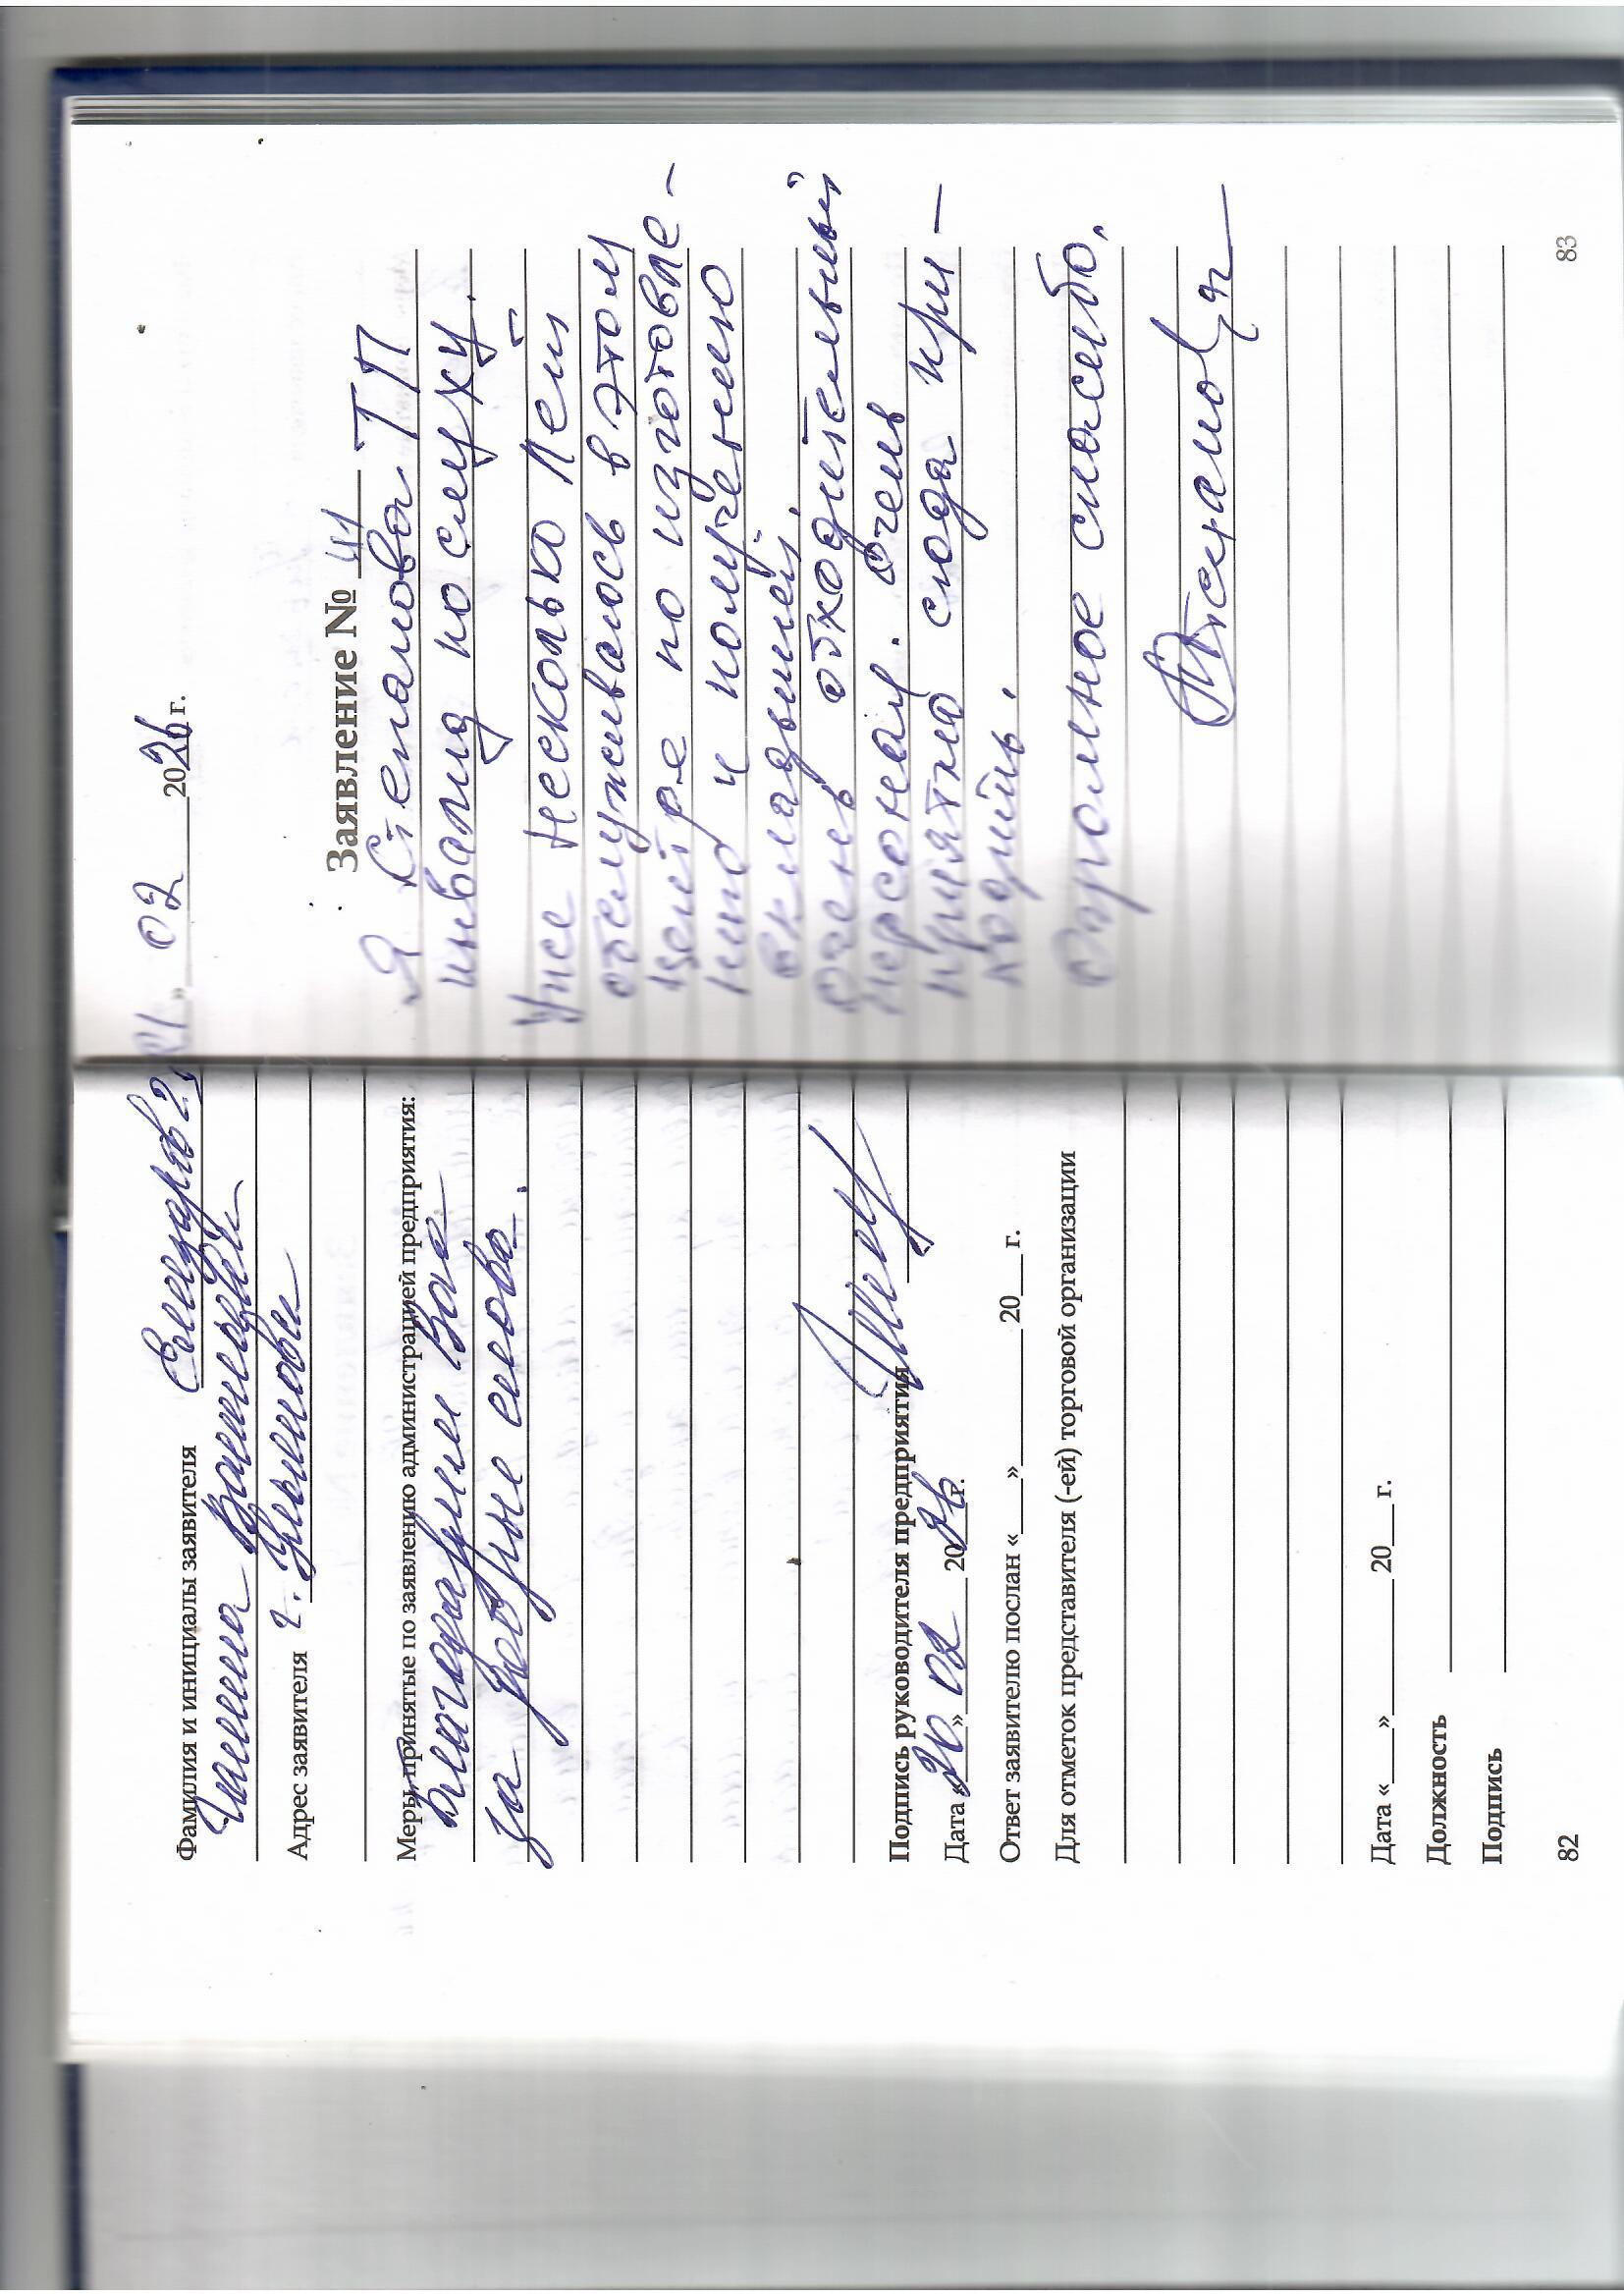 Фамилия и инициалы заявителя
Адрес заявителя г. Ульяновск
Меры, принятые по заявлению администрацией предприятия:
Благодарим Вас
за добрые слова.
Подпись руководителя предприятия
Дата « » 02 2026 г.
Ответ заявителю послан «___»________20___г.
Для отметок представителя (-ей) торговой организации
Дата «___»________20___г.
Должность
Подпись
82
02 2026 г.
Заявление № 41
Я Степанова Т П
инвалид по слуху.
Уже несколько лет
обслуживаюсь в этом
центре по изготовле-
нию и получению
вкладышей.
Очень обходительный
персонал. Очень
приятно сюда при-
ходить.
Огромное спасибо.
83